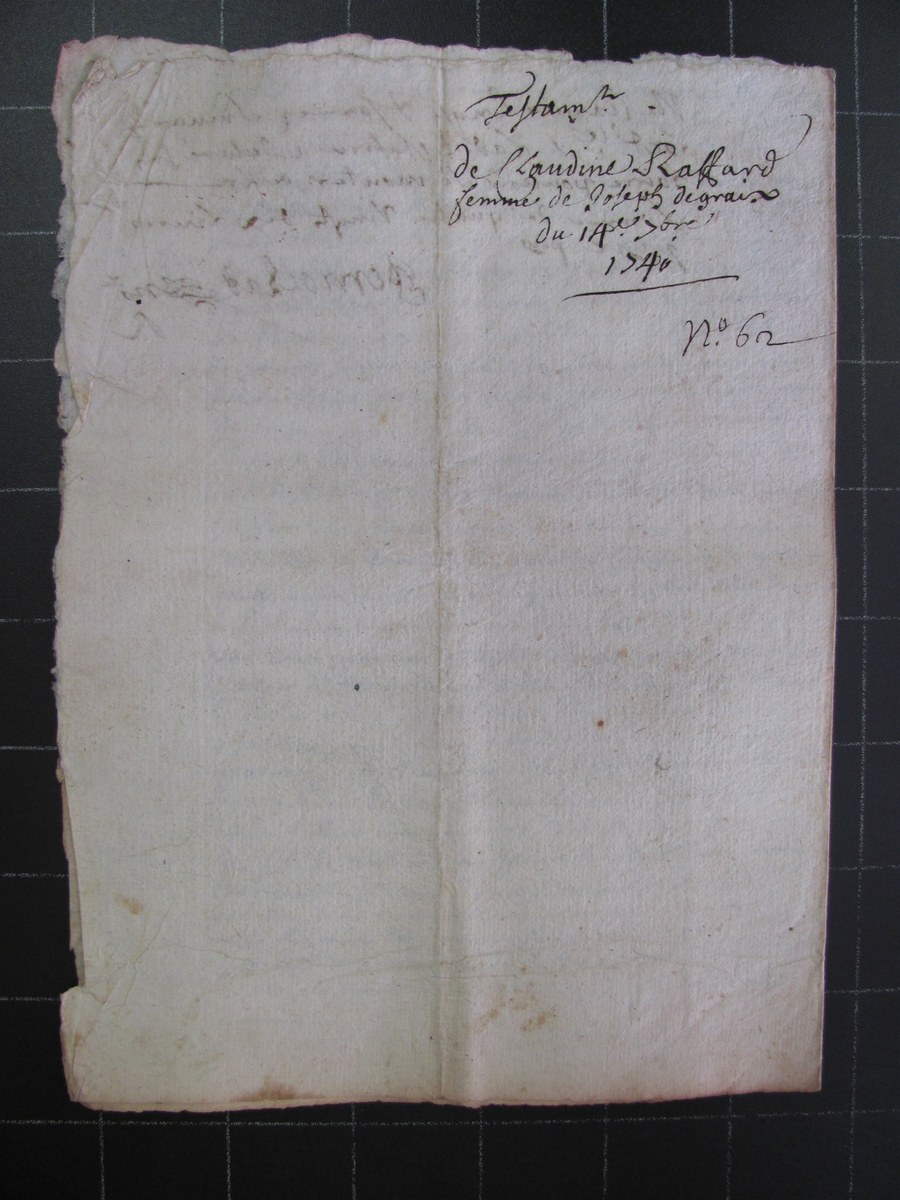 Testamt
de Claudine Raffard
femme de Joseph degraix
du 14e 7bre
1740
No. 62